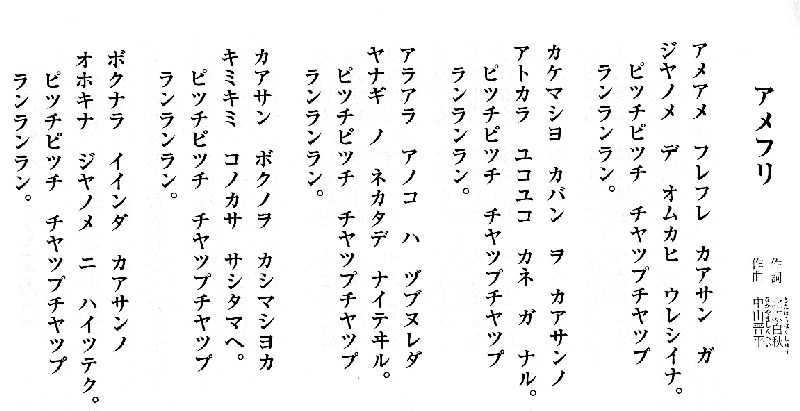 アメフリ
作詞 北原白秋
作曲 中山晋平
アメアメ フレフレ カアサン ガ
ジヤノメ デ オムカヒ ウレシイナ。
ピツチピツチ チヤツプチヤツプ
ランランラン。
カケマシヨ カバン ヲ カアサンノ
アトカラ ユコユコ カネ ガ ナル。
ピツチピツチ チヤツプチヤツプ
ランランラン。
アラアラ アノコ ハ ヅブヌレダ
ヤナギ ノ ネカタデ ナイテヰル。
ピツチピツチ チヤツプチヤツプ
ランランラン。
カアサン ボクノヲ カシマシヨカ
キミキミ コノカサ サシタマヘ。
ピツチピツチ チヤツプチヤツプ
ランランラン。
ボクナラ イインダ カアサンノ
オホキナ ジヤノメ ニ ハイツテク。
ピツチピツチ チヤツプチヤツプ
ランランラン。